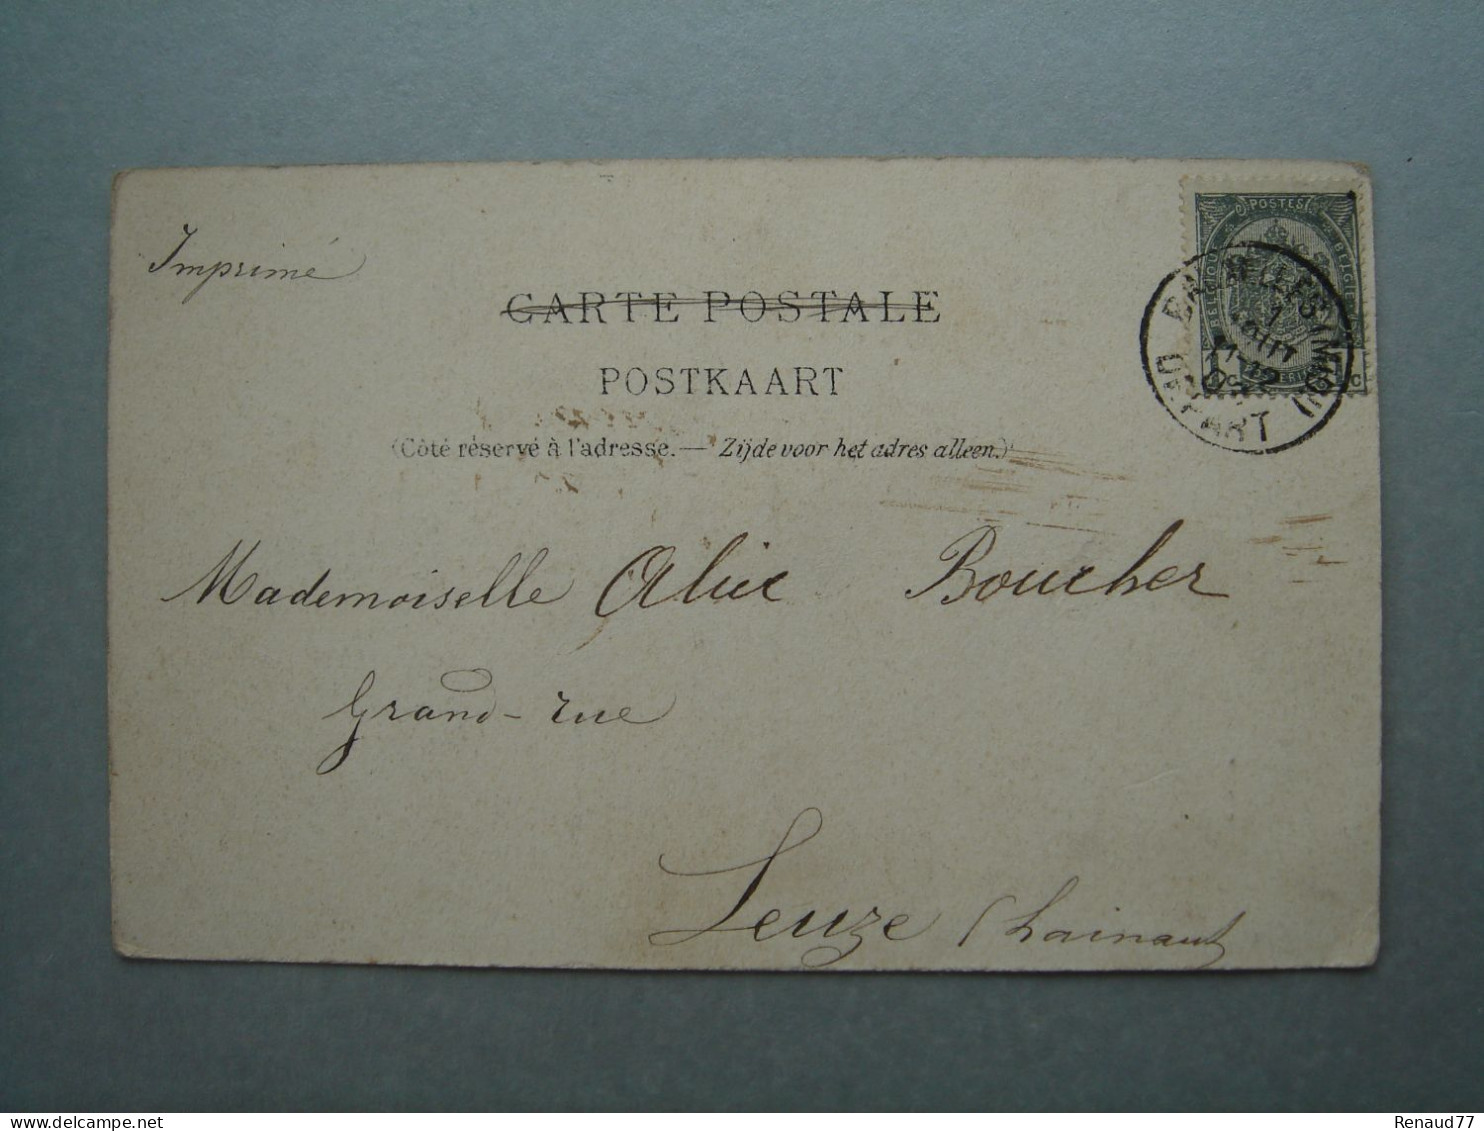 Imprimé
CARTE POSTALE
POSTKAART
(Côté réservé à l'adresse.— Zijde voor het adres alleen.)
POSTES
BELGIQUE BELGIE
BRUXELLES (MIDI)
1
AOUT
11-12
DÉPART
Mademoiselle Alice Boucher
Grand-rue
Leuze (hainaut
Renaud77